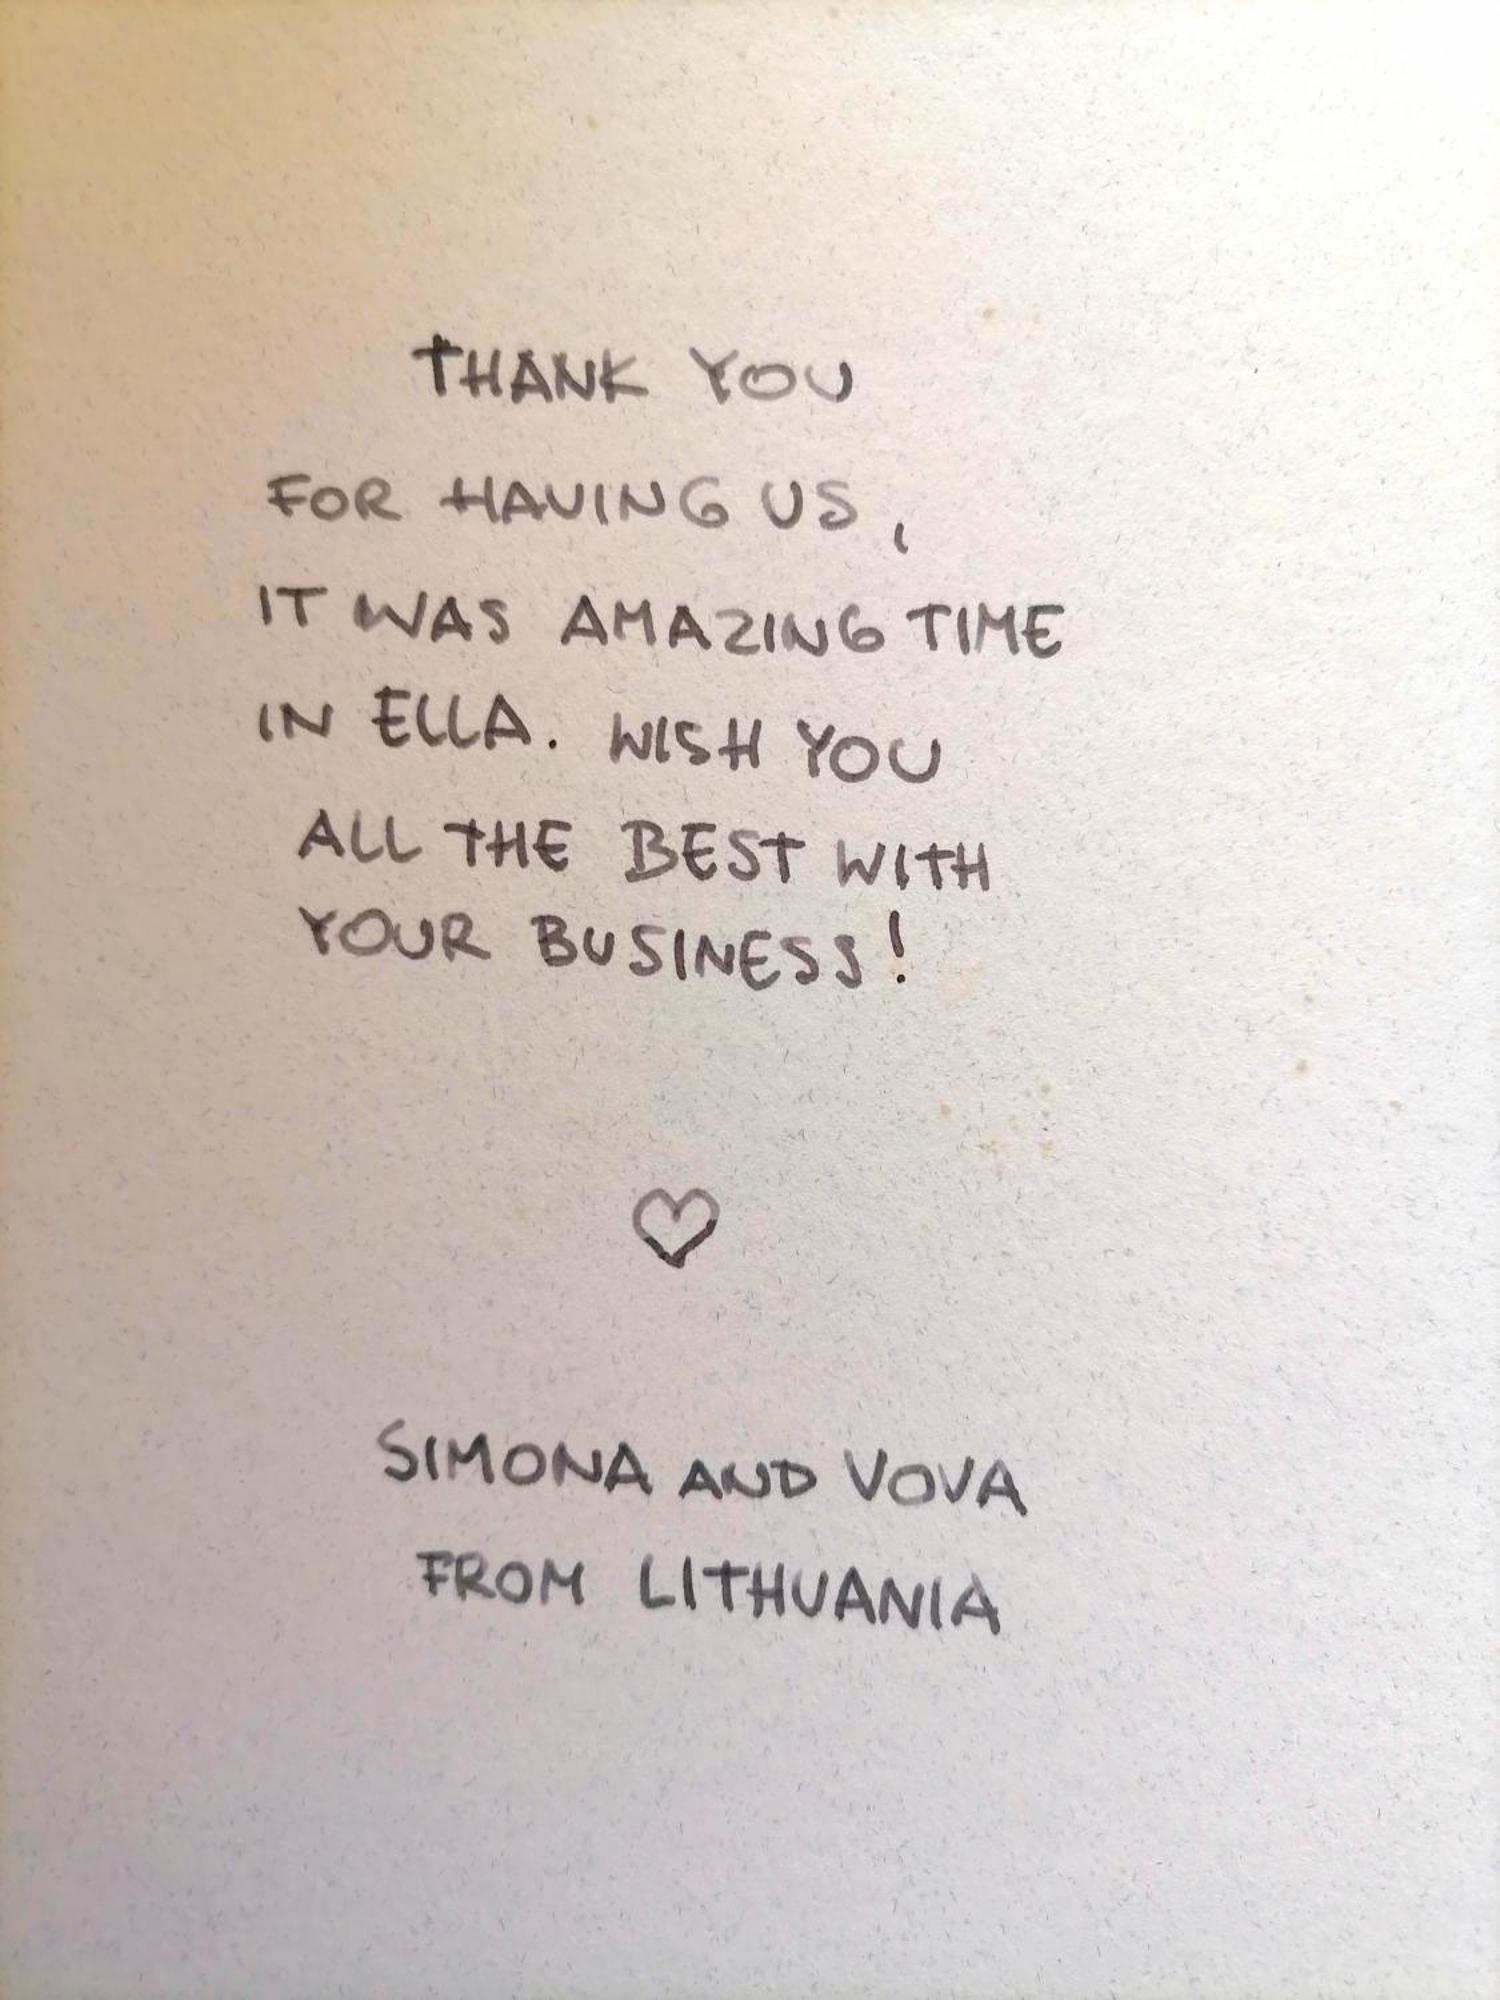 THANK YOU
FOR HAVING US,
IT WAS AMAZING TIME
IN ELLA. WISH YOU
ALL THE BEST WITH
YOUR BUSINESS!
SIMONA AND VOVA
FROM LITHUANIA